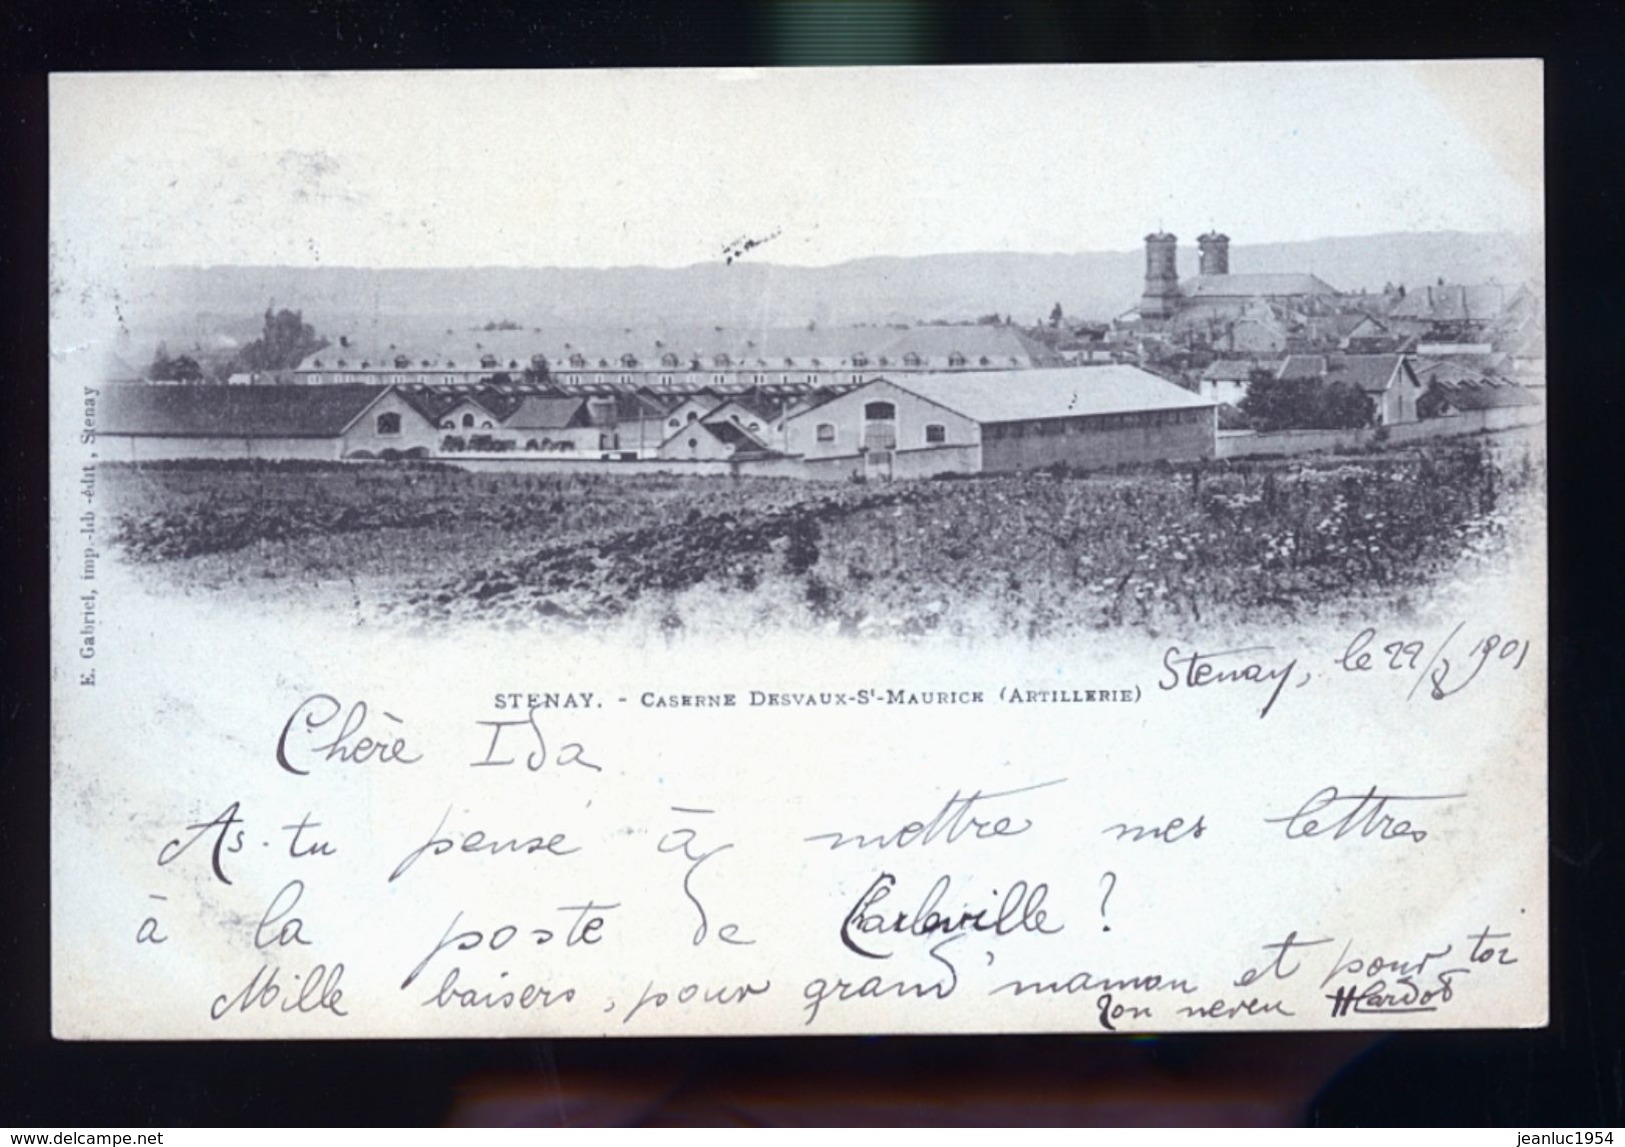 E. Gabriel, imp.-lib.-édit., Stenay
STENAY. - CASERNE DESVAUX-St-MAURICE (ARTILLERIE)
Stenay, le 29/8 1901
Chère Ida
As-tu pensé à mettre mes lettres
à la poste de Charleville ?
Mille baisers, pour grand'maman et pour toi
Ton neveu
www.delcampe.net
jeanluc1954